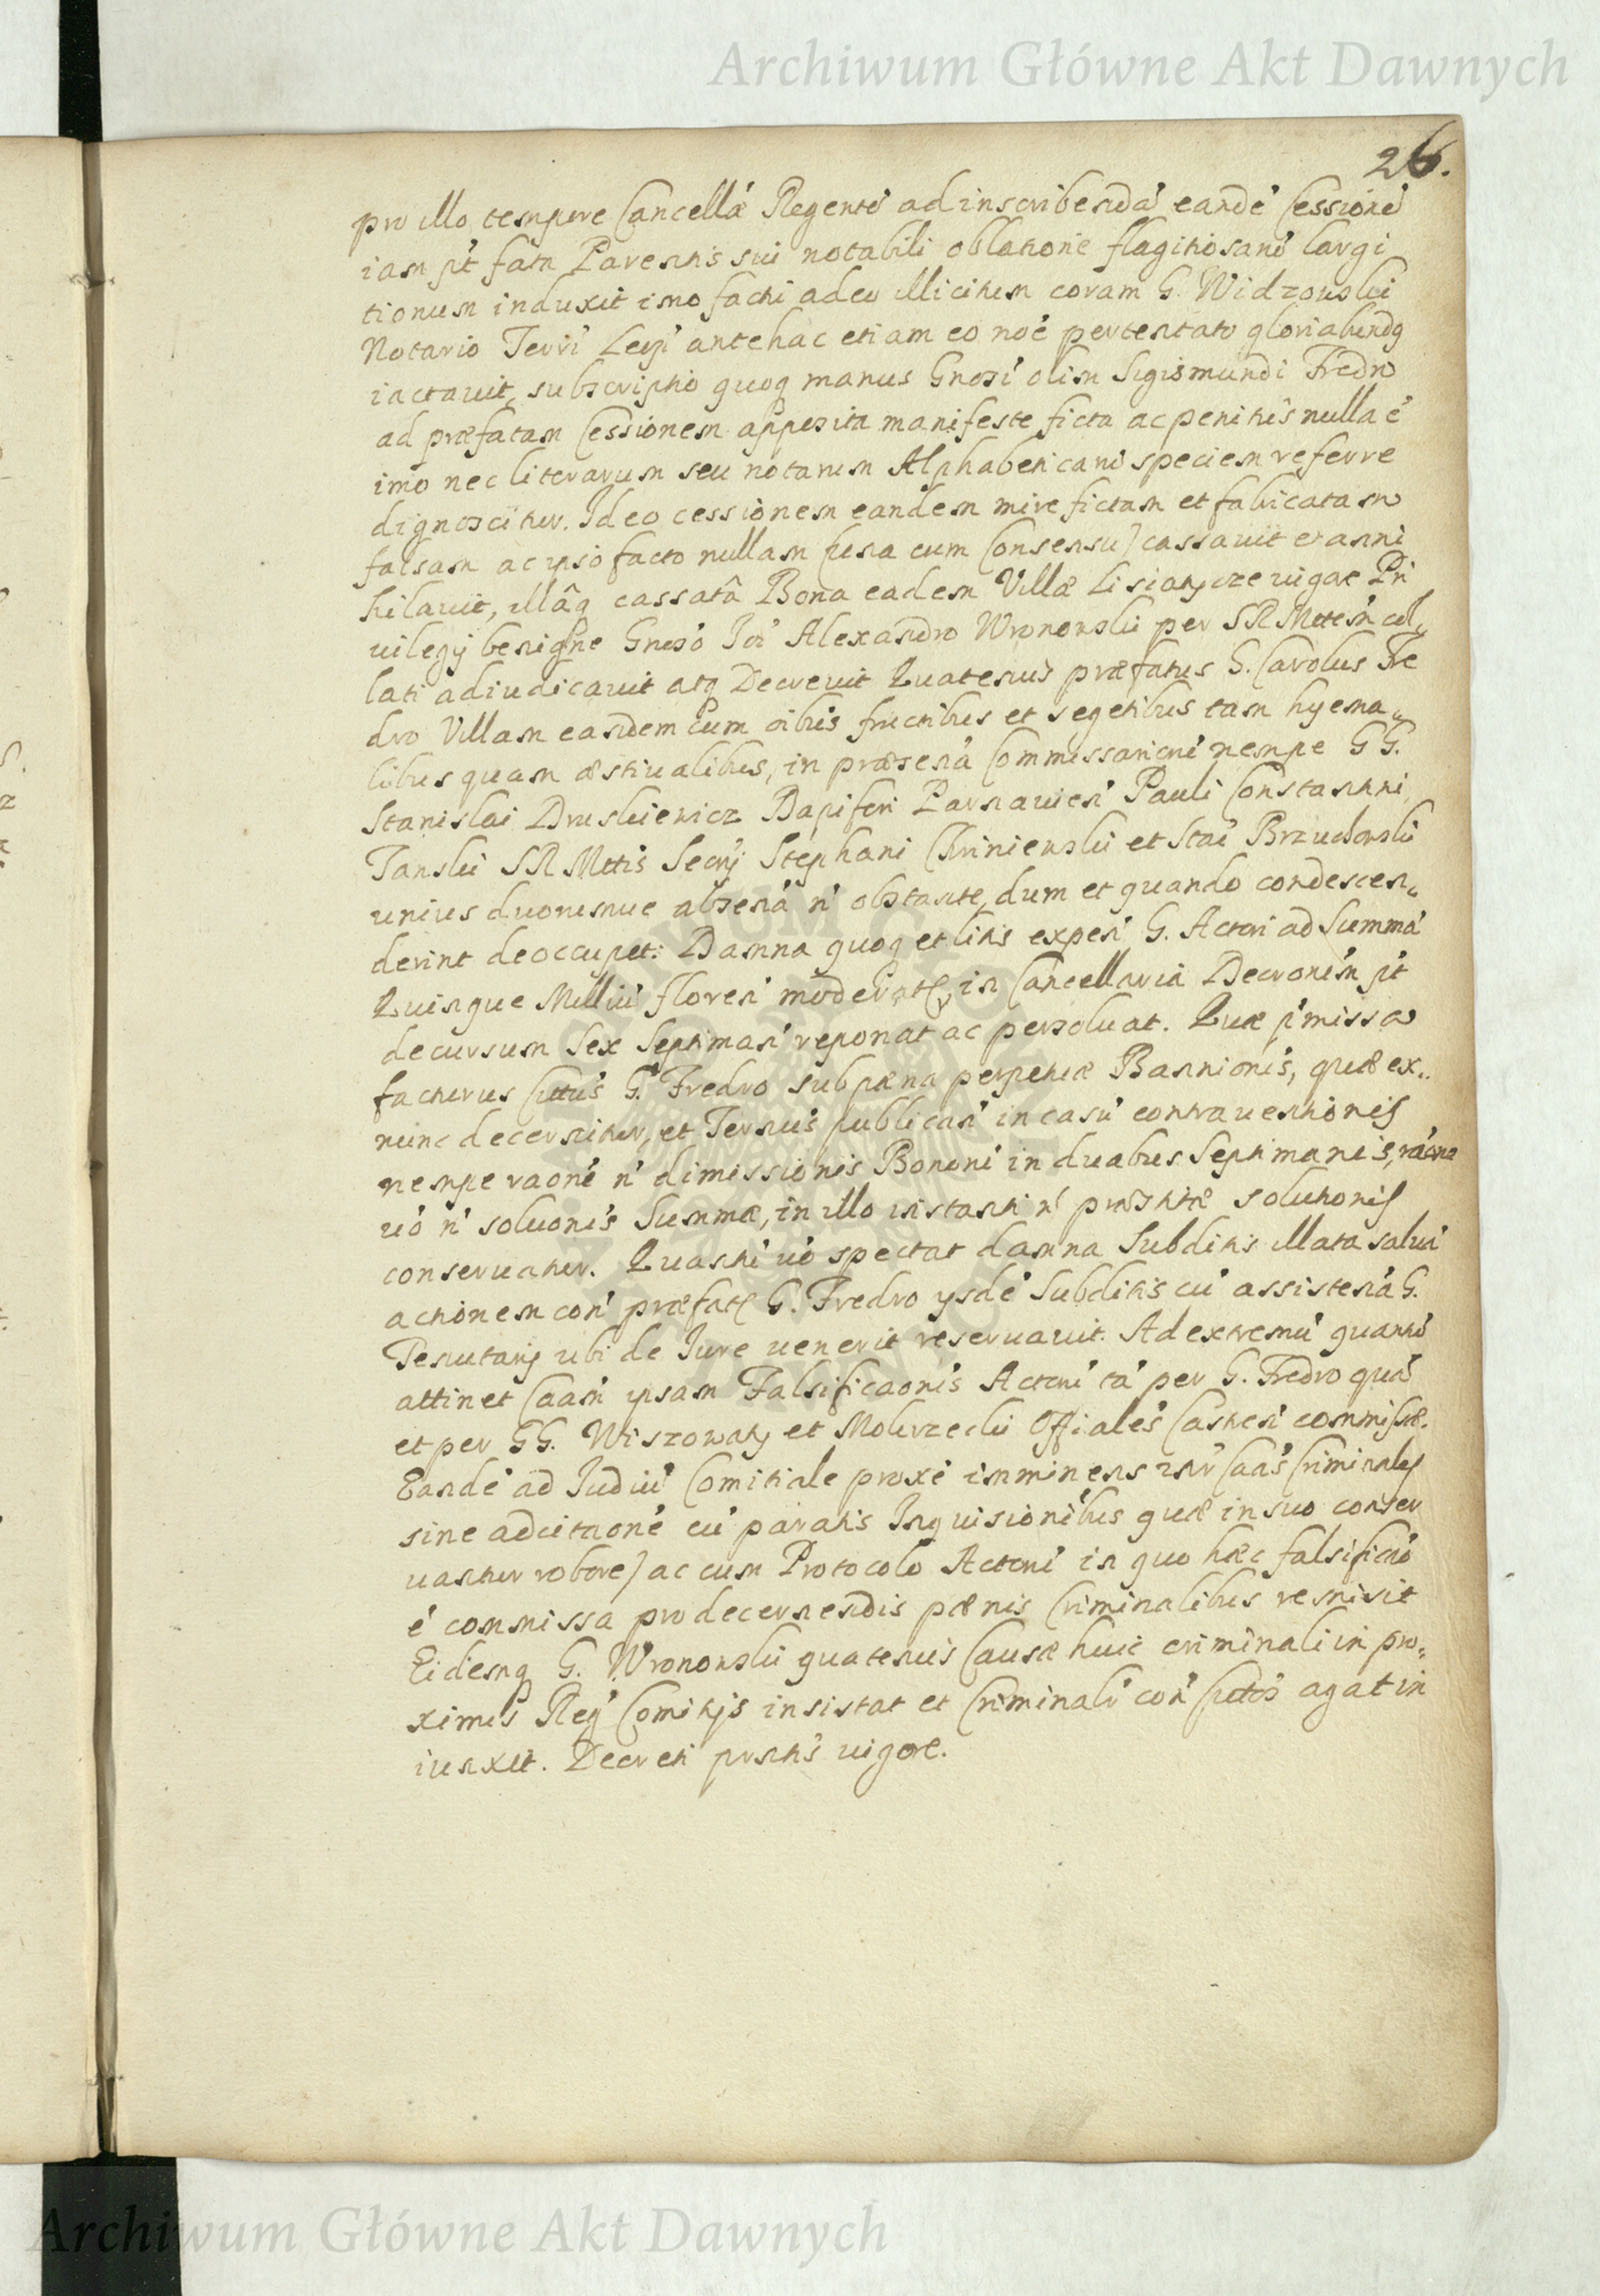 Archiwum Główne Akt Dawnych
26.
pro illo tempore Cancellæ Regentē ad inscribendā eandē Cessionē
iam pt fata Parentis sui notabili oblatione flagitiosam largi
tionum induxit imo facti adeo illicitum coram G. Widzowski
Notario Terri Leŋ antehac etiam eo noē pertentato gloriabundq
iactauit, subscriptio quoq manus Gnosi olim Sigismundi Fredro
ad præfatam Cessionem apposita manifeste ficta ac penitus nulla ē
imo nec literarum seu notarum Alphabeticarū speciem referre
dignoscitur. Ideo cessionem eandem mire fictam et fabricatam
falsam ac ipso facto nullam (una cum Consensu) cassauit et anni
hilauit, illâq cassatâ Bona eadem Villæ Lisiatycze uigore Pri
uilegij benigne Gnoso Joi Alexandro Wronowski per SRMttem col,
lati adiudicauit atq Decreuit Quatenus præfatus G. Carolus Fre
dro Villam eandem cum oibus fructibus et segetibus tam hyema,
libus quam æstiualibus, in præsena Commissariorū nempe GG.
Stanislai Druskiewicz Dapiferi Parnauien Pauli Constantini
Tanski SRMttis Secrij Stephani Chriniewski et Stai Brzuchowski
unius duorumue absena n obstante, dum et quando condescen,
derint deoccupet: Damna quoq et litis expen G. Actori ad Summā
Quinque Milliū floren moderate, in Cancellaria Decronem pt
decursum Sex Septiman reponat ac persoluat. Quæ pmissa
facturus Cittus G. Fredro sub pæna perpetuæ Bannionis, quæ ex,,
nunc decernitur, et Ternus publican in casu contrauentionis
nempe raone n dimissionis Bonorū in duabus Septimanis, raōne
uō n soluonis Summæ, in illo instanti n præstitæ solutionis
conseruatur. Quanti uō spectat damna Subditis illata saluā
actionem con præfate G. Fredro ysdē Subditis cū assistenā G.
Tenutarij ubi de Jure uenerit reseruauit. Ad extremū quantū
attinet Caam ipsam Falsificaonis Actorū tā per G. Fredro quā
et per GG. Wiszowaty et Mokrzecki Offiales Castren commissæ.
Eandē ad Judiū Comitiale proxē imminens intr Caas Criminales
sine adcitaone cū paratis Inquisionibus quæ in suo conser
uantur robore) ac cum Protocolo Actorū in quo hæc falsificaō
ē commissa pro decernendis pænis Criminalibus remisit
Eidemq G. Wronowski quatenus Causæ huic criminali in pro,
ximis Reg Comitijs insistat et Criminalr con Cittos agat in
iunxit. Decreti prsntis uigore.
Archiwum Główne Akt Dawnych